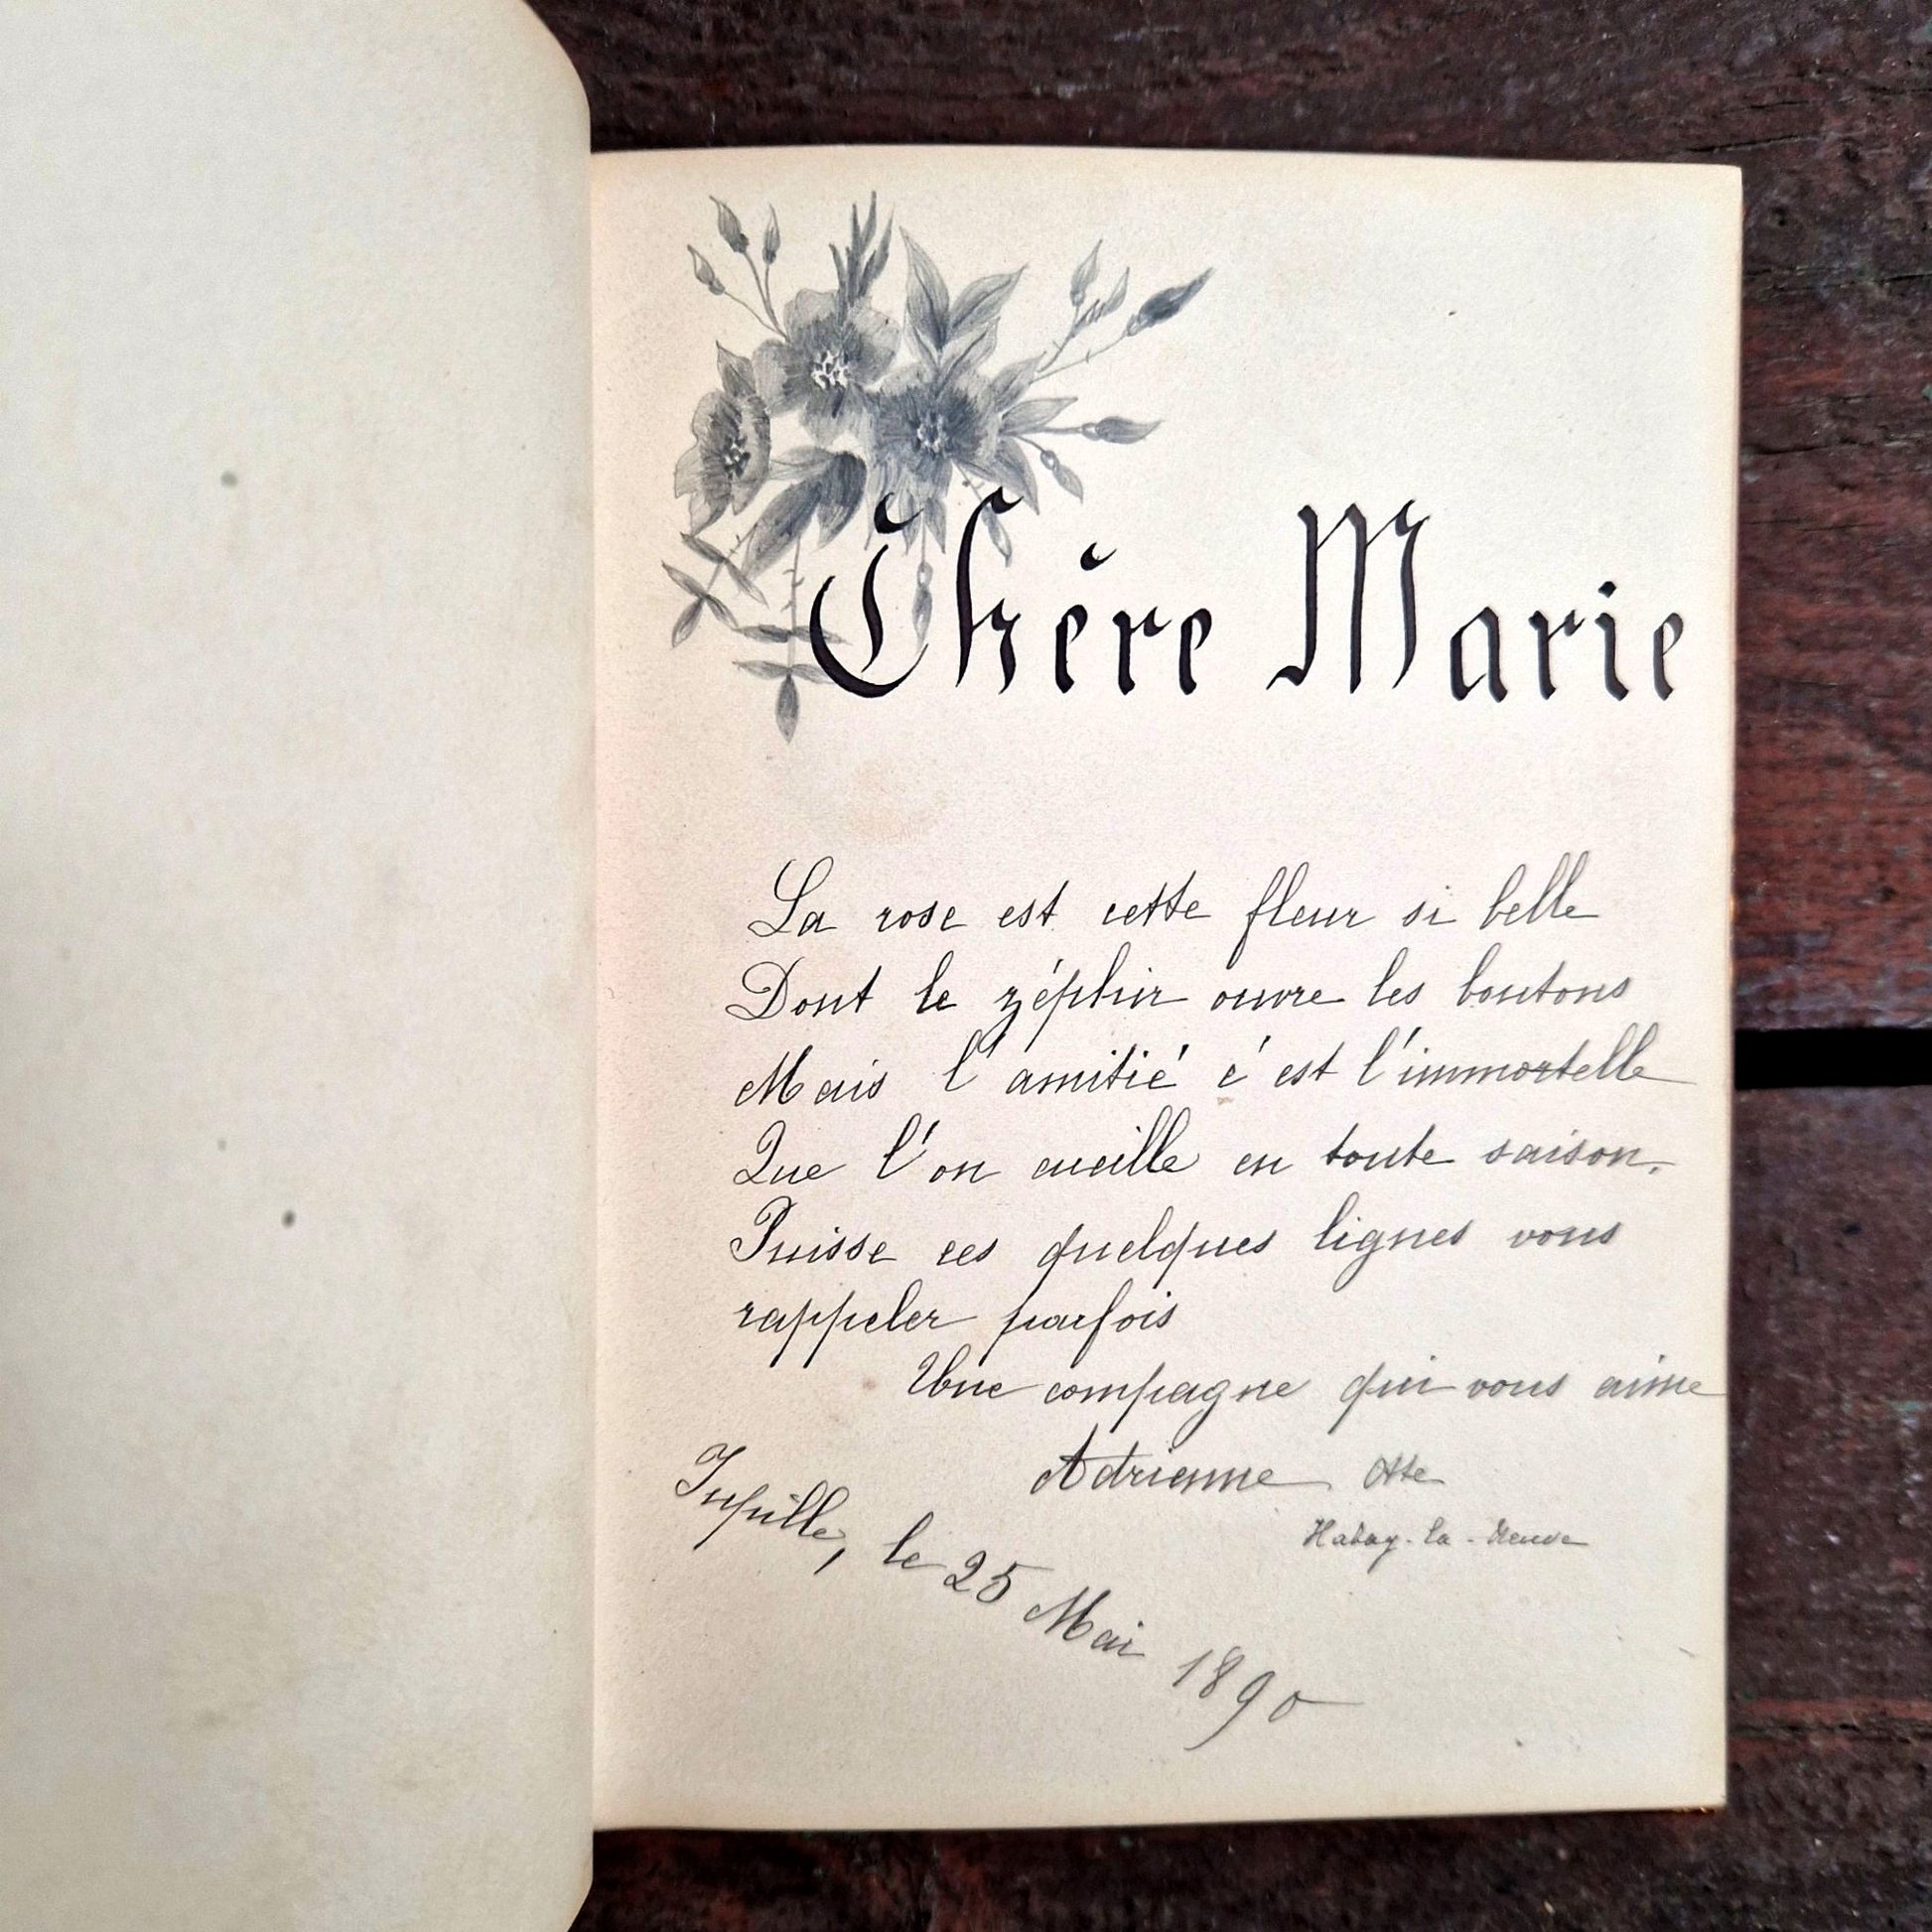 Chère Marie
La rose est cette fleur si belle
Dont le zéphir ouvre les boutons
Mais l'amitié c'est l'immortelle
Que l'on cueille en toute saison.
Puisse ces quelques lignes vous
rappeler parfois
Une compagne qui vous aime
Adrienne Otte
Habay-la-Neuve
Jupille, le 25 Mai 1890